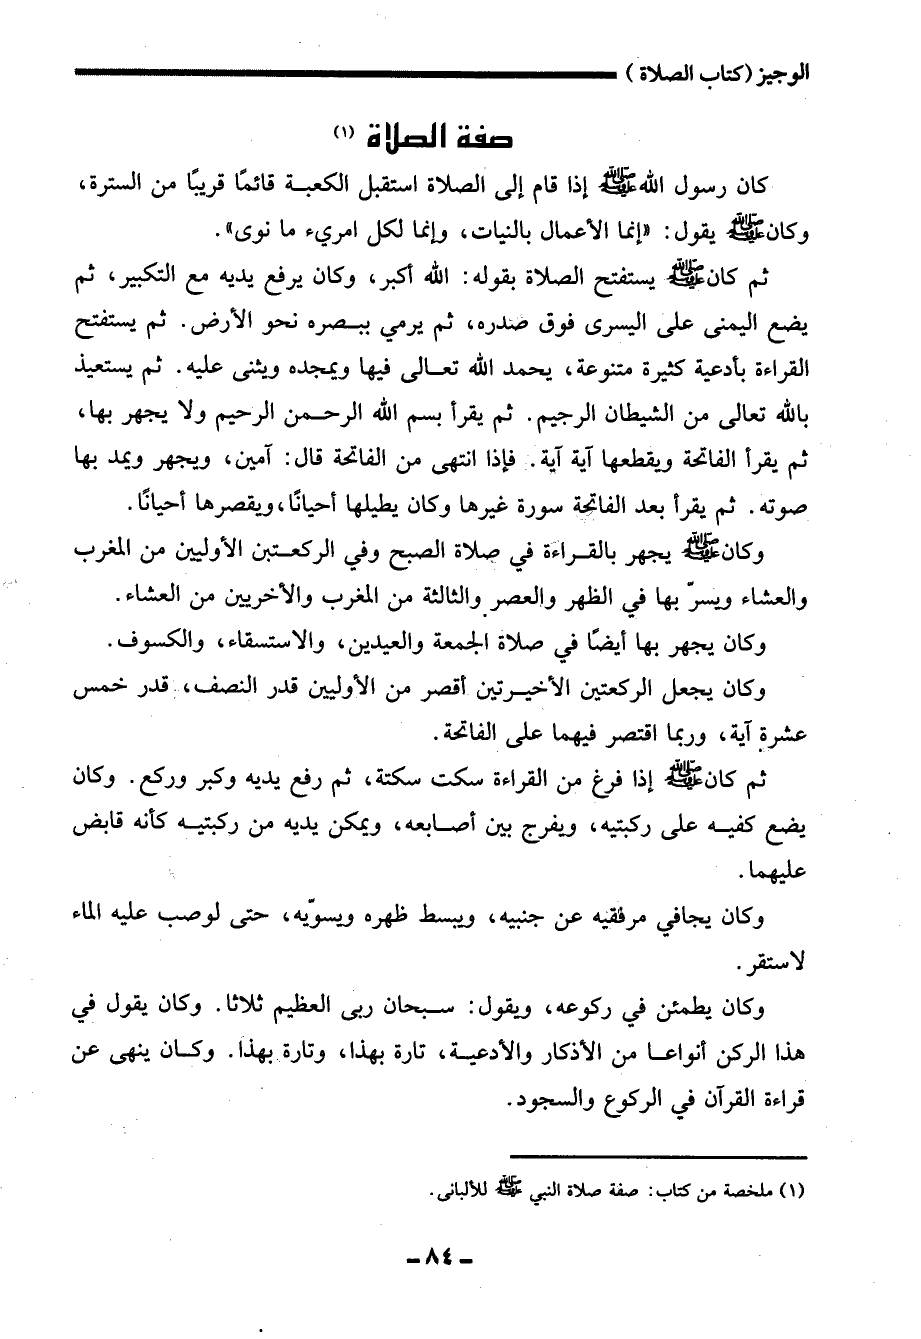 الوجيز (كتاب الصلاة)
صفة الصلاة (١)
كان رسول الله ﷺ إذا قام إلى الصلاة استقبل الكعبة قائمًا قريبًا من السترة،
وكان ﷺ يقول: «إنما الأعمال بالنيات، وإنما لكل امريء ما نوى».
ثم كان ﷺ يستفتح الصلاة بقوله: الله أكبر، وكان يرفع يديه مع التكبير، ثم
يضع اليمنى على اليسرى فوق صدره، ثم يرمي ببصره نحو الأرض. ثم يستفتح
القراءة بأدعية كثيرة متنوعة، يحمد الله تعالى فيها ويمجده ويثنى عليه. ثم يستعيذ
بالله تعالى من الشيطان الرجيم. ثم يقرأ بسم الله الرحمن الرحيم ولا يجهر بها،
ثم يقرأ الفاتحة ويقطعها آية آية. فإذا انتهى من الفاتحة قال: آمين، ويجهر ويمد بها
صوته. ثم يقرأ بعد الفاتحة سورة غيرها وكان يطيلها أحيانًا، ويقصرها أحيانًا.
وكان ﷺ يجهر بالقراءة في صلاة الصبح وفي الركعتين الأوليين من المغرب
والعشاء ويسرّ بها في الظهر والعصر والثالثة من المغرب والأخريين من العشاء.
وكان يجهر بها أيضًا في صلاة الجمعة والعيدين، والاستسقاء، والكسوف.
وكان يجعل الركعتين الأخيرتين أقصر من الأوليين قدر النصف، قدر خمس
عشرة آية، وربما اقتصر فيهما على الفاتحة.
ثم كان ﷺ إذا فرغ من القراءة سكت سكتة، ثم رفع يديه وكبر وركع. وكان
يضع كفيه على ركبتيه، ويفرج بين أصابعه، ويمكن يديه من ركبتيه كأنه قابض
عليهما.
وكان يجافي مرفقيه عن جنبيه، ويبسط ظهره ويسوّيه، حتى لوصب عليه الماء
لاستقر.
وكان يطمئن في ركوعه، ويقول: سبحان ربى العظيم ثلاثا. وكان يقول في
هذا الركن أنواعا من الأذكار والأدعية، تارة بهذا، وتارة بهذا. وكان ينهى عن
قراءة القرآن في الركوع والسجود.
(١) ملخصة من كتاب: صفة صلاة النبي ﷺ للألبانى.
ـ ٨٤ ـ